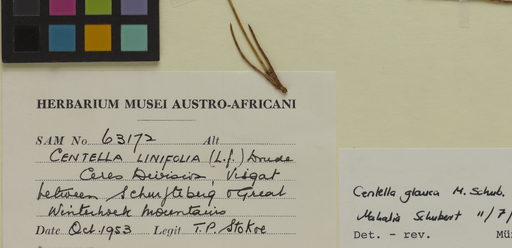 HERBARIUM MUSEI AUSTRO-AFRICANI
SAM No 63172 Alt
CENTELLA LINIFOLIA (L.f.) Drude
Ceres Division, Visgat
between Schurfteberg & Great
Winterhoek Mountains
Date Oct. 1953 Legit T.P. Stokoe
Centella glauca M. Schub.
Mahalia Schubert 11/7/
Det. - rev. Mün